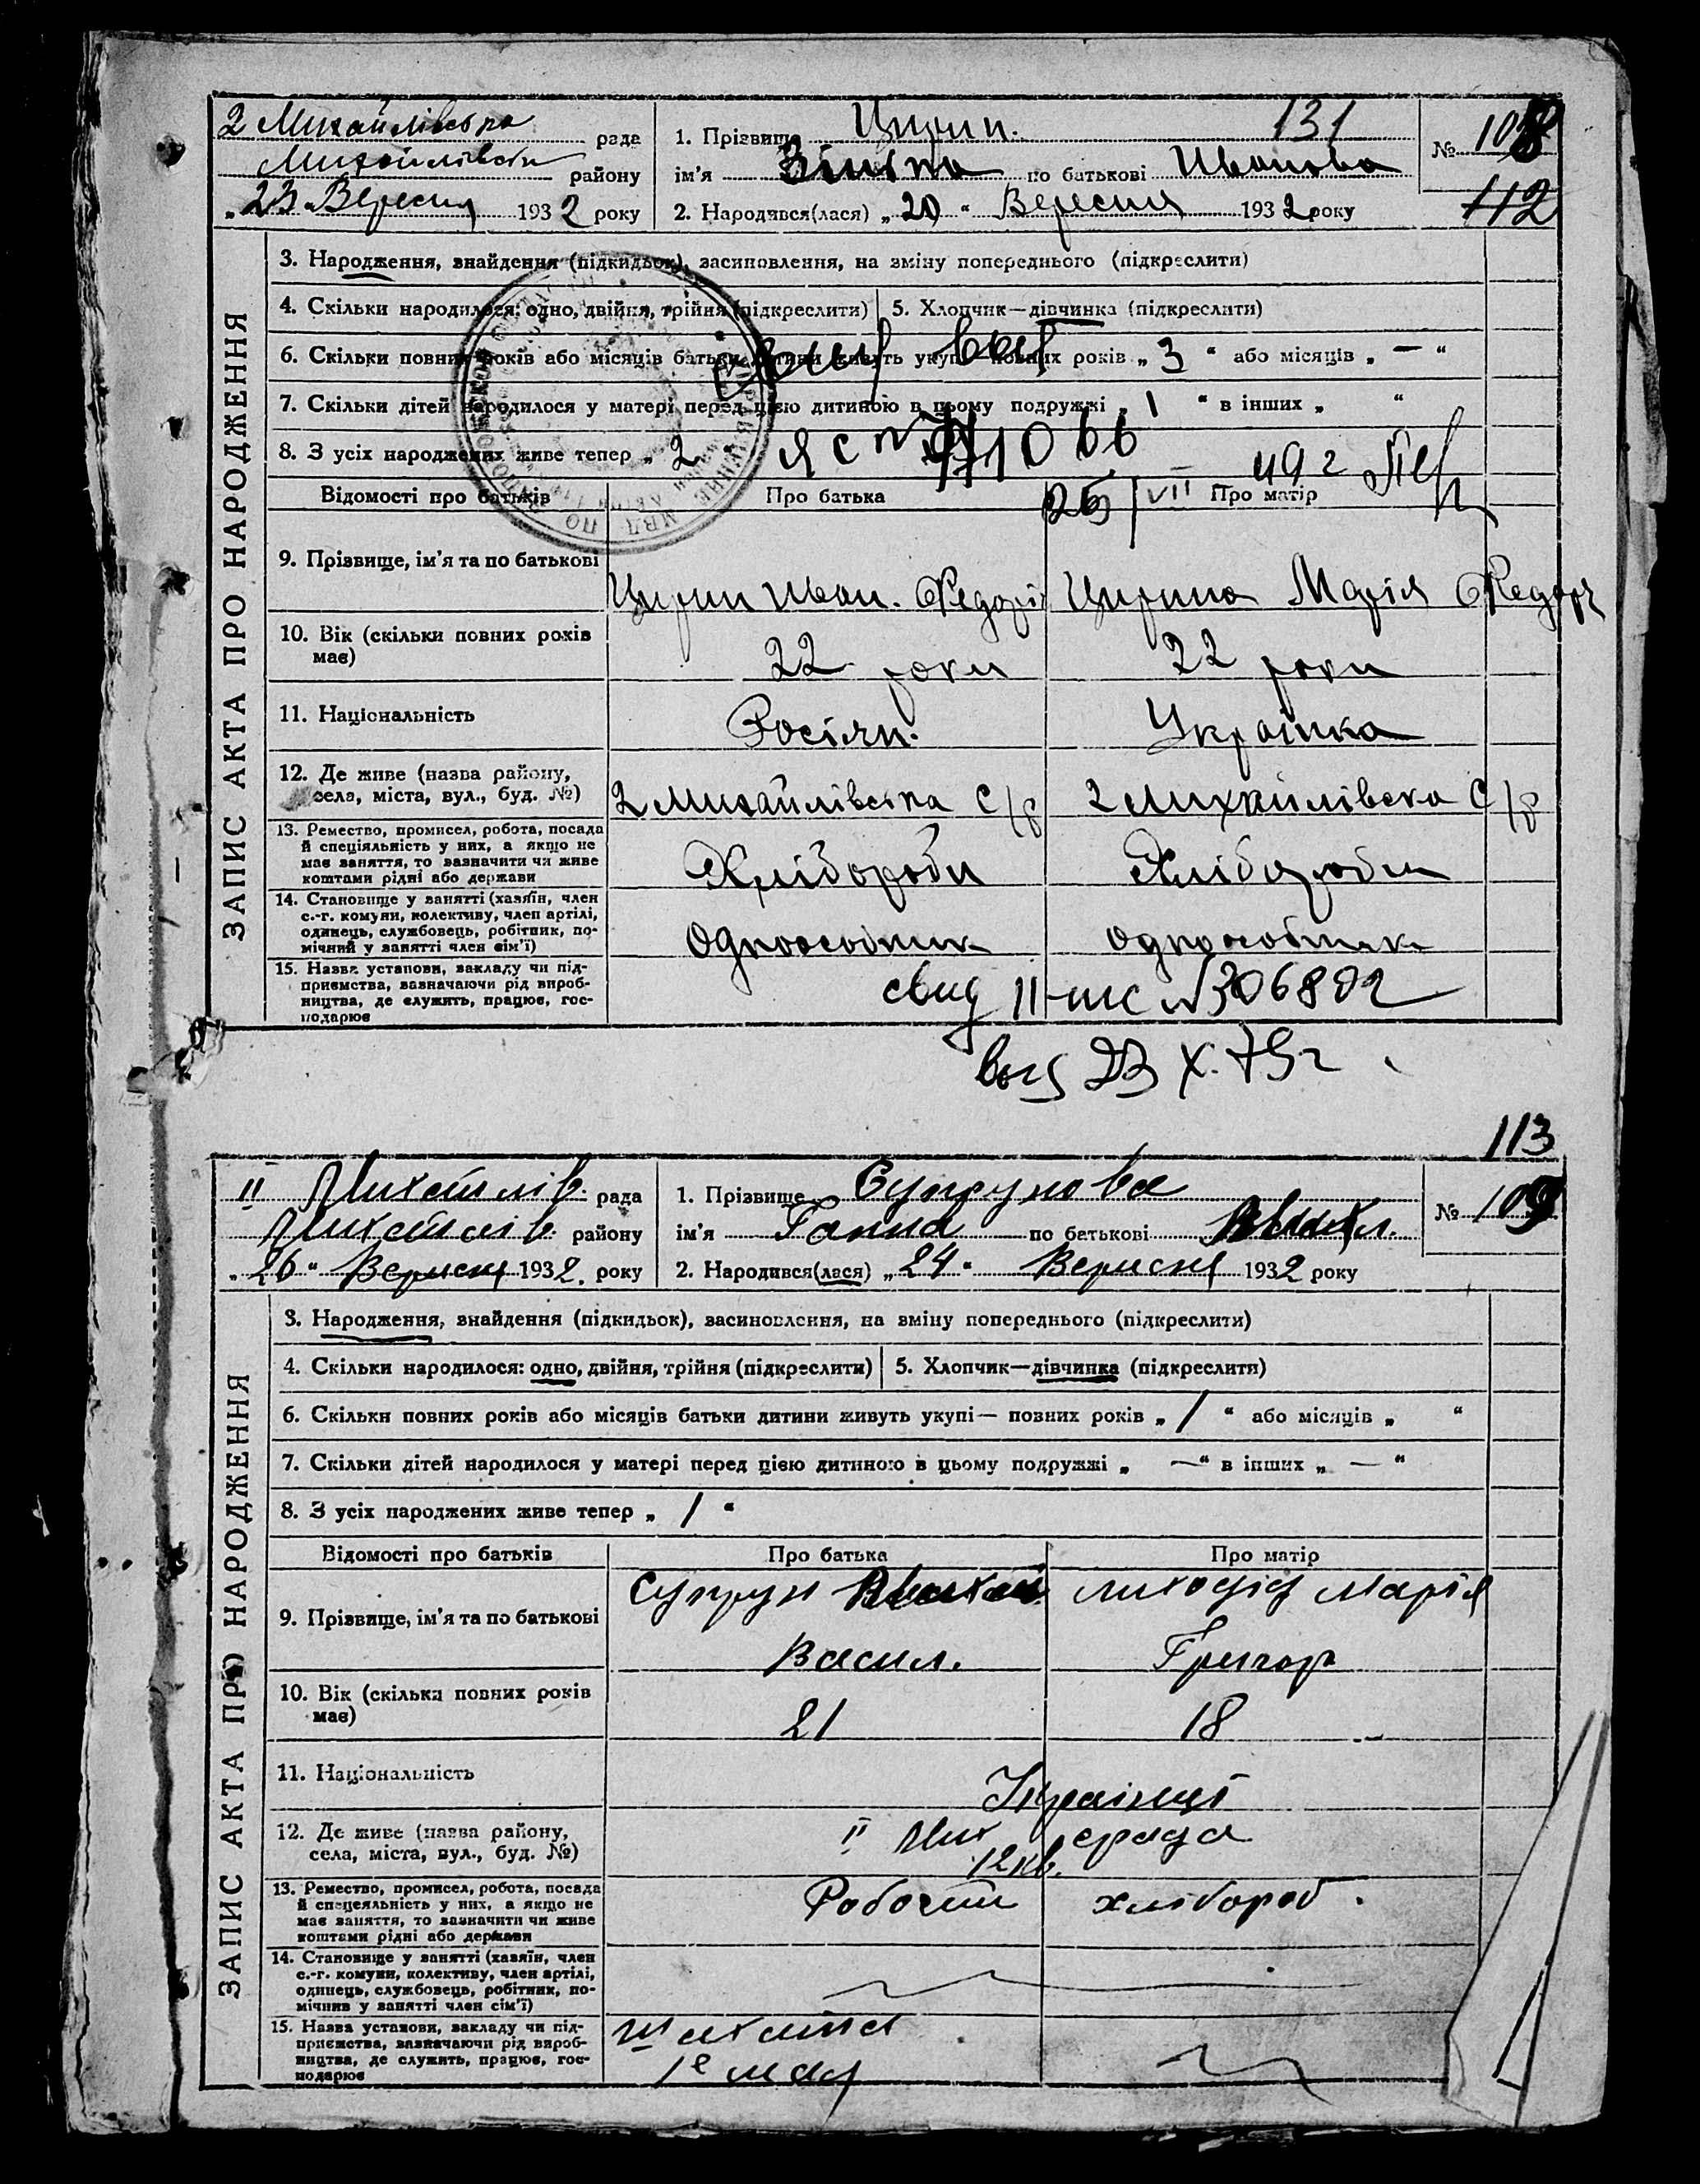 2 Михайлівська рада
Михайлівськ району
„23" Вересня 1932 року
1. Прізвище Цирип. 131
ім'я по батькові Иванова
2. Народився(лася) „20" Вересня 1932 року
№ 108
112
ЗАПИС АКТА ПРО НАРОДЖЕННЯ
3. Народження, знайдення (підкидьок), засиновлення, на зміну попереднього (підкреслити)
4. Скільки народилося: одно, двійня, трійня (підкреслити) 5. Хлопчик—дівчинка (підкреслити)
6. Скільки повних років або місяців батьки дитини живуть укупі— повних років „3" або місяців „—"
7. Скільки дітей народилося у матері перед цією дитиною в цьому подружжі „1" в інших „ "
8. З усіх народжених живе тепер „2"
25/VII 49 г
Відомості про батьків Про батька Про матір
9. Прізвище, ім'я та по батькові
Цирин Иван. Федорі Цирина Марія Федорі
10. Вік (скільки повних років має)
22 роки 22 роки
11. Національність
Росіян. Украінка
12. Де живе (назва району, села, міста, вул., буд. №)
2 Михайлівська с/р 2 Михайлівска с/р
13. Ремество, промисел, робота, посада
й спеціяльність у них, а якщо не
має заняття, то зазначити чи живе
коштами рідні або держави
Хлібороби Хлібороби
14. Становище у занятті (хазяїн, член
с.-г. комуни, колективу, член артілі,
одинець, службовець, робітник, по-
мічний у занятті член сім'ї)
Одноособник одноособник
15. Назва установи, закладу чи під-
приємства, зазначаючи рід вироб-
ництва, де служить, працює, гос-
подарює
свид II-шс №306892
выд 23 X. 75г
113
II Михайлів. рада
Михайлів. району
„26" Вересня 1932. року
1. Прізвище Супрунова
ім'я Ганна по батькові
2. Народився(лася) „24" Вересня 1932 року
№ 109
ЗАПИС АКТА ПРО НАРОДЖЕННЯ
3. Народження, знайдення (підкидьок), засиновлення, на зміну попереднього (підкреслити)
4. Скільки народилося: одно, двійня, трійня (підкреслити) 5. Хлопчик—дівчинка (підкреслити)
6. Скільки повних років або місяців батьки дитини живуть укупі— повних років „1" або місяців „ "
7. Скільки дітей народилося у матері перед цією дитиною в цьому подружжі „—" в інших „—"
8. З усіх народжених живе тепер „1"
Відомості про батьків Про батька Про матір
9. Прізвище, ім'я та по батькові
Супрун Лиходід Марія
Васил. Григор
10. Вік (скільки повних років має)
21 18
11. Національність
Украінці
12. Де живе (назва району, села, міста, вул., буд. №)
II Мих срада
12 кв.
13. Ремество, промисел, робота, посада
й спецеяльність у них, а якщо не
має заняття, то зазначити чи живе
коштами рідні або держави
Робочий хлібороб.
14. Становище у занятті (хазяїн, член
с.-г. комуни, колективу, член артілі,
одинець, службовець, робітник, по-
мічнив у занятті член сім'ї)
15. Назва установи, закладу чи під-
приємства, зазначаючи рід вироб-
ництва, де служить, працює, гос-
подарює
шахтта
1е мая